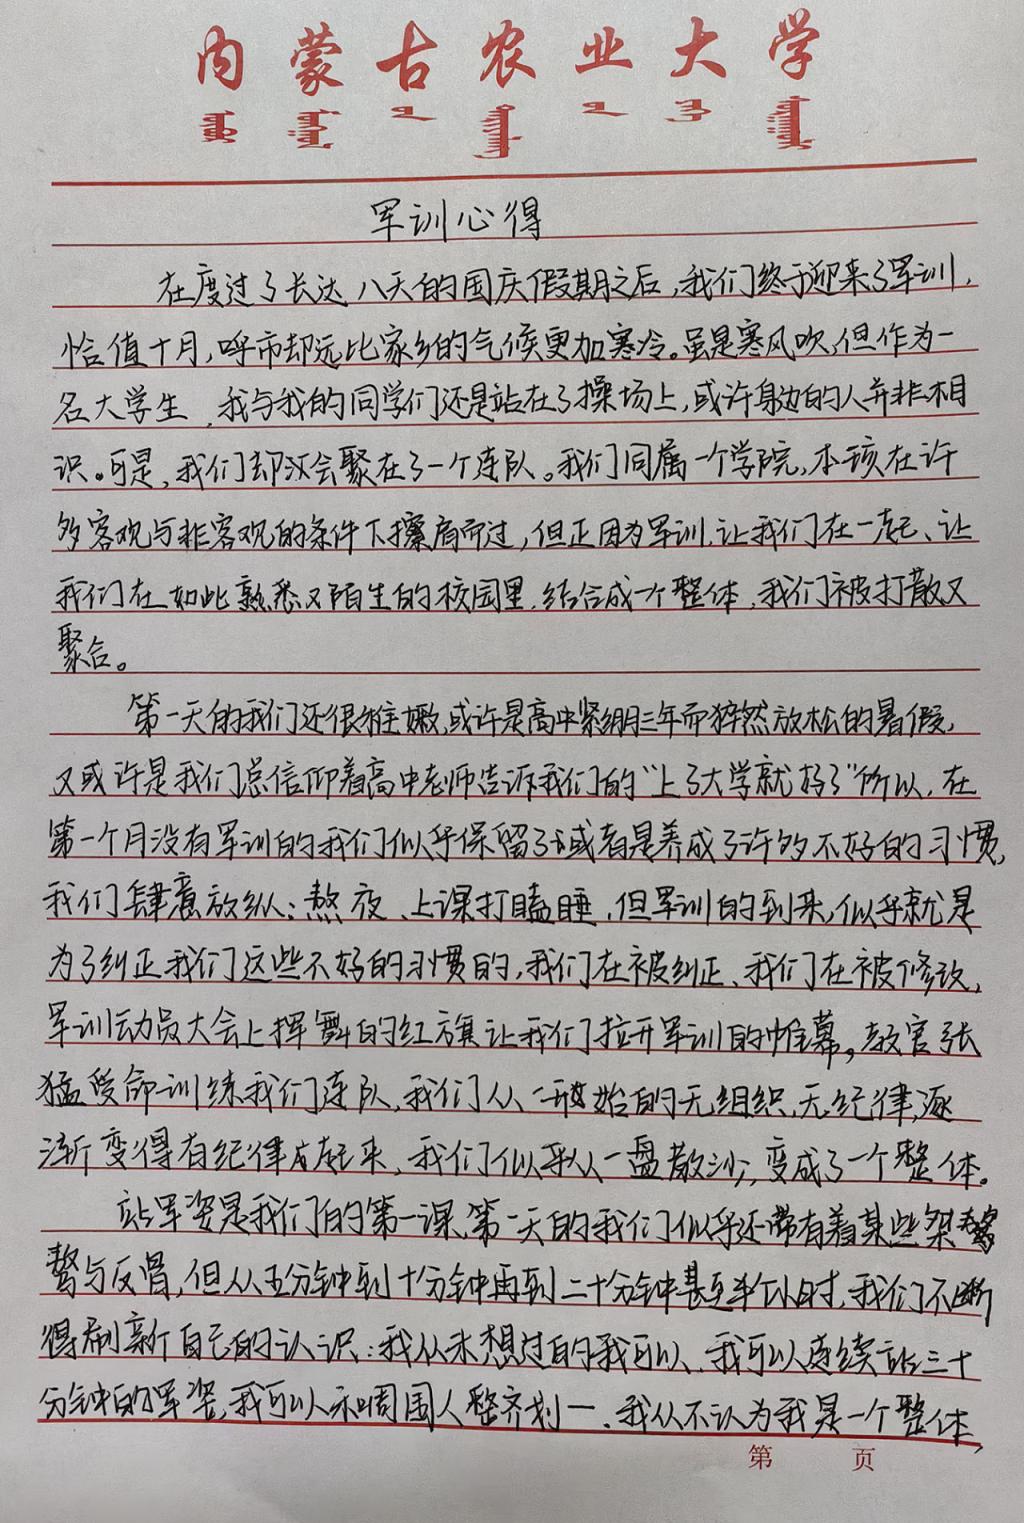 内蒙古农业大学
军训心得
在度过了长达八天的国庆假期之后,我们终于迎来了军训,
恰值十月,呼市却远比家乡的气候更加寒冷。虽是寒风吹,但作为一
名大学生,我与我的同学们还是站在了操场上,或许身边的人并非相
识。可是,我们却汉会聚在了一个连队。我们同属一个学院,本该在许
多客观与非客观的条件下擦肩而过,但正因为军训,让我们在一起、让
我们在如此熟悉又陌生的校园里,结合成一个整体,我们被打散又
聚合。
第一天的我们还很稚嫩,或许是高中紧绷三年而猝然放松的暑假,
又或许是我们总信仰着高中老师告诉我们的“上了大学就好了”所以,在
第一个月没有军训的我们似乎保留了或者是养成了许多不好的习惯,
我们肆意放纵:熬夜、上课打瞌睡,但军训的到来,似乎就是
为了纠正我们这些不好的习惯的,我们在被纠正、我们在被修改,
军训动员大会上挥舞的红旗让我们拉开军训的帷幕。教官张
猛受命训练我们连队,我们从一开始的无组织,无纪律,逐
渐变得有纪律起来,我们似乎从一盘散沙,变成了一个整体。
站军姿是我们的第一课,第一天的我们似乎还带有着某些桀
骜与反骨,但从五分钟到十分钟再到二十分钟甚至半个小时,我们不断
得刷新自己的认识:我从未想过的我可以,我可以连续站三十
分钟的军姿,我可以和周围人整齐划一,我从不认为我是一个整体,
第 页